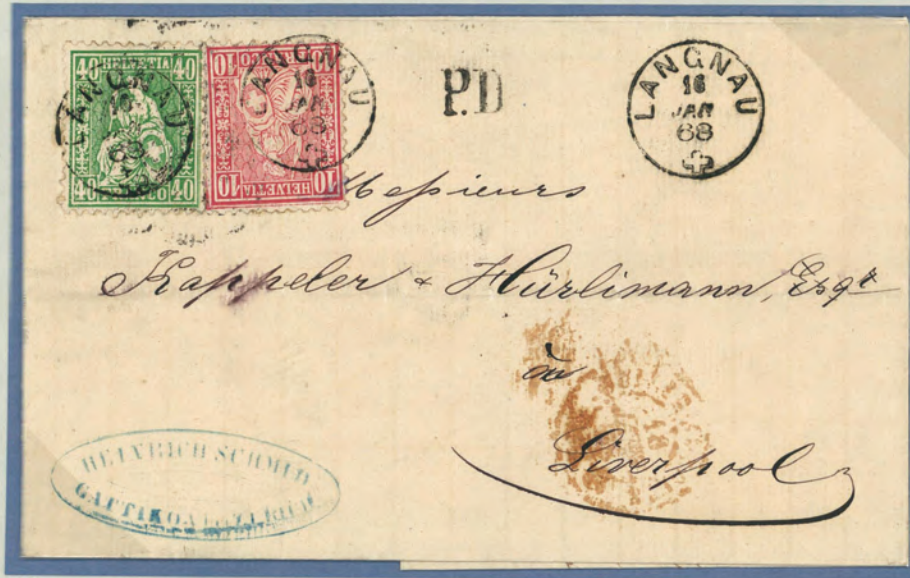 40 HELVETIA 40
40 40
LANGNAU
68
10 HELVETIA 10
10 FRANCO 10
LANGNAU
16
JAN
68
P.D
LANGNAU
16
JAN
68
Messieurs
Kappeler & Hürlimann, Esqr
à
Liverpool
HEINRICH SCHMID
GATTIKON ZÜRICH